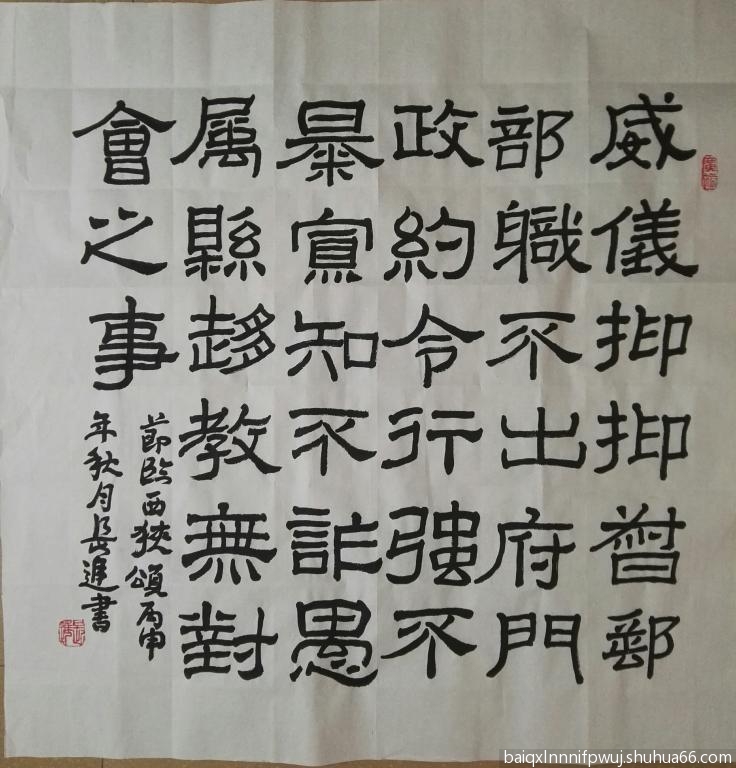 威儀抑抑督郵
部職不出府門
政約令行强不
暴寡知不詐愚
属縣趍教無對
會之事
節臨西狹頌丙申
年秋月長進書
baiqxlnnnifpwuj.shuhua66.com